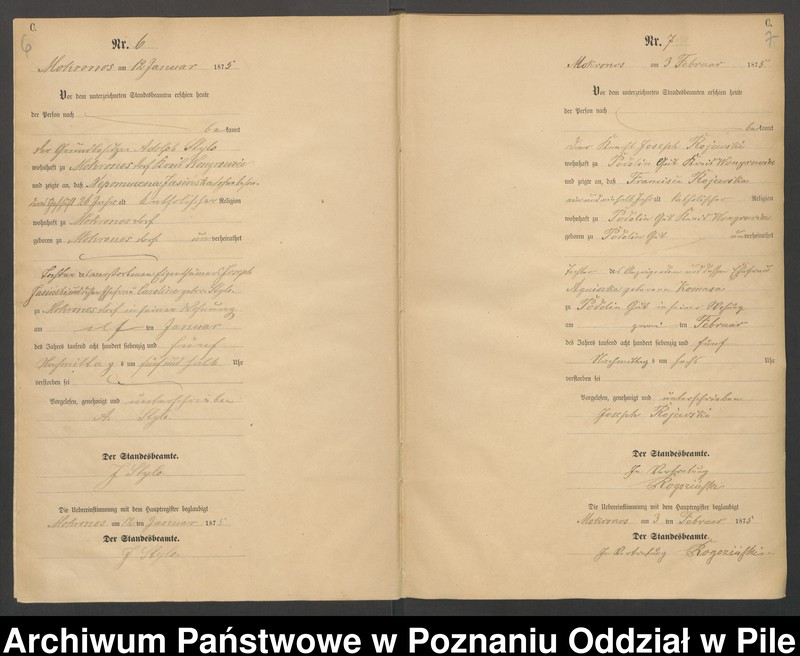 C.
6
Nr. 6
Mokronos am 12 Januar 1875
Vor dem unterzeichneten Standesbeamten erschien heute
der Person nach
bekannt
der Grundbesitzer Adolph Stylo
wohnhaft zu Mokronos dorf Kreis Wongrowitz
und zeigte an, daß Nepomucena Jasinska
36 Jahr alt Katholischer Religion
wohnhaft zu Mokronos dorf
geboren zu Mokronos dorf unverheirathet
Tochter des verstorbenen Eigenthümers Joseph
Jasinski und dessen Ehefrau Caroline geboren Stylo
zu Mokronos dorf in seiner Wohnung
am elf ten Januar
des Jahres tausend acht hundert siebenzig und fünf
Nachmittags um fünf und halb Uhr
verstorben sei
Vorgelesen, genehmigt und unterschrieben
A. Stylo
Der Standesbeamte.
J Stylo
Die Uebereinstimmung mit dem Hauptregister beglaubigt
Mokronos am 12 ten Januar 1875
Der Standesbeamte.
J Stylo
C.
7
Nr. 7
Mokronos am 3 Februar 1875
Vor dem unterzeichneten Standesbeamten erschien heute
der Person nach
bekannt
der Knecht Joseph Kojewski
wohnhaft zu Podolin Gut Kreis Wongrowitz
und zeigte an, daß Francisca Kojewska
ein und ein halb Jahr alt katholischer Religion
wohnhaft zu Podolin Gut Kreis Wongrowitz
geboren zu Podolin Gut unverheirathet
Tochter des Anzeigenden und dessen Ehefrau
Agnieszka geborene Komasa
zu Podolin Gut in seiner Wohnung
am zwei ten Februar
des Jahres tausend acht hundert siebenzig und fünf
Nachmittags um sechs Uhr
verstorben sei
Vorgelesen, genehmigt und unterschrieben
Joseph Kojewski
Der Standesbeamte.
In Vertretung
Rogozinski
Die Uebereinstimmung mit dem Hauptregister beglaubigt
Mokronos am 3 ten Februar 1875
Der Standesbeamte.
In Vertretung Rogozinski
Archiwum Państwowe w Poznaniu Oddział w Pile